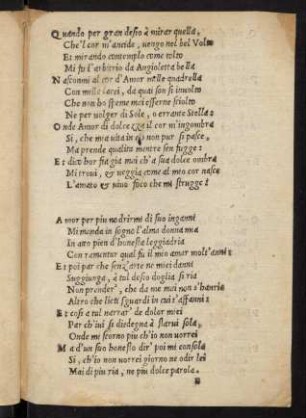 Quando per gran desio à mirar quella,
Che'l cor m'ancide, vengo nel bel Volto
Et mirando contemplo come tolto
Mi fu l'arbitrio da Angioletta bella
Nascommi al cor d'Amor mille quadrella
Con mille lacci, da quai son si involto
Che non ho speme mai esserne sciolto
Ne per volger di Sole, o errante Stella:
Onde Amor di dolcezza il cor m'ingombra
Si, che mia vita in ciò non pur si pasce,
Ma prende qualità mentre sen fugge:
Et dico hor fia già mai ch'a sua dolce ombra
Mi trovi, et veggia come al mio cor nasce
L'amato et vivo foco che mi strugge?
Amor per piu nodrirmi di suo inganni
Mi manda in sogno l'alma donna mia
In atto pien d'honesta leggiadria
Con ramentar qual fu il mio amar molt'anni:
Et poi par che senz'arte ne miei danni
Suggiunga, à tal desio doglia ria
Non prender', che da me mai non s'hauria
Altro che lieti sguardi in cui s'affanni:
Et cosi a tal narrar' de dolor miei
Par ch'ivi si disdegna à starvi sola,
Onde mi scorno piu ch'io non vorrei
Ma d'un suo honesto dir' poi mi consola
Si, ch'io non vorrei giorno ne odir lei
Mai di piu ria, ne piu dolce parola.